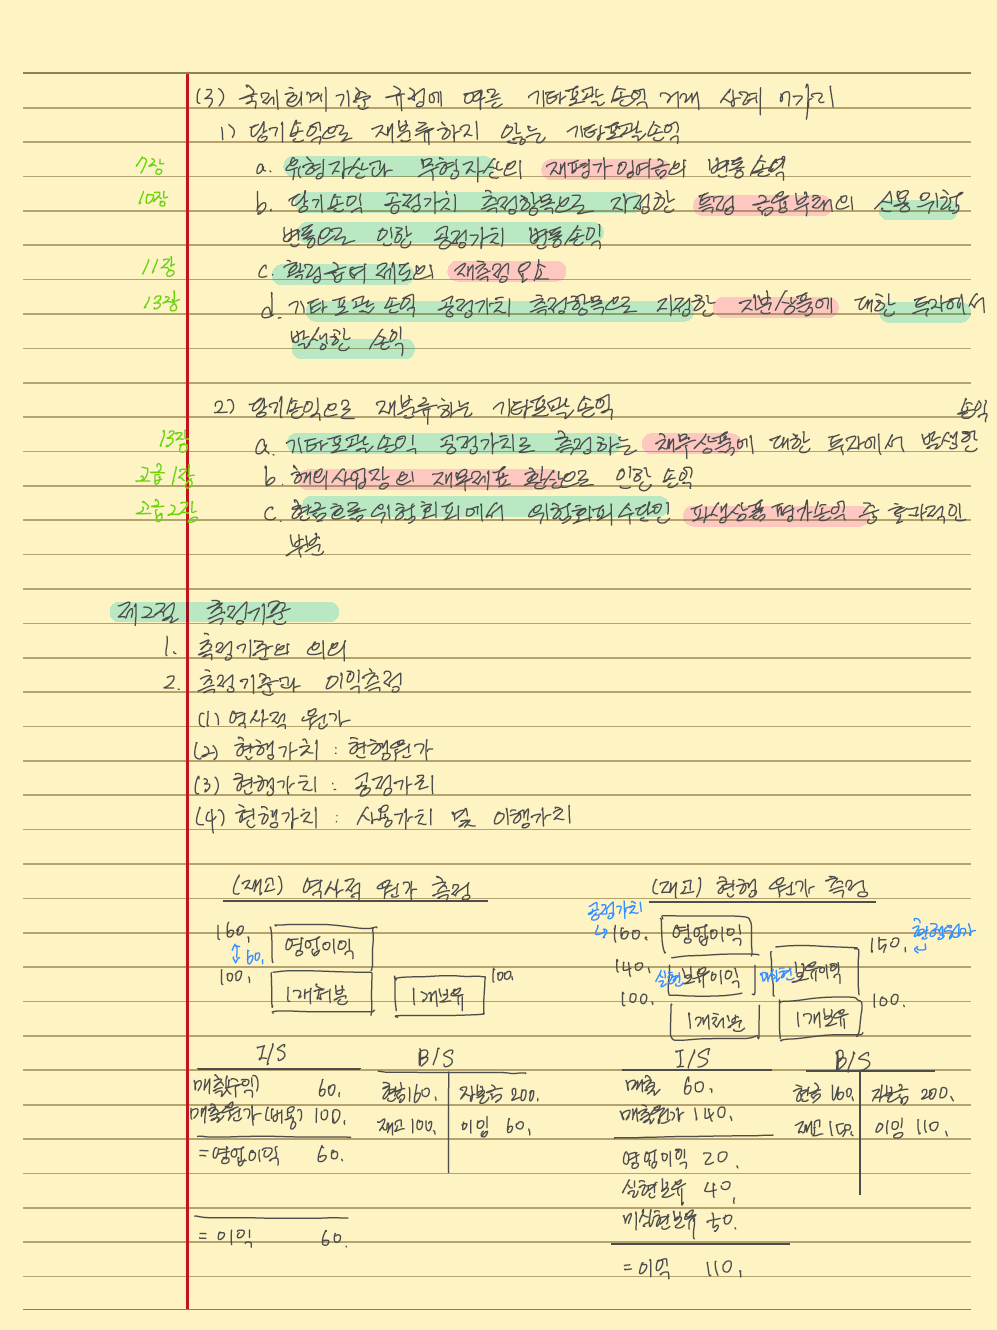 (3) 국제회계기준 규정에 따른 기타포괄손익 거래 사례 7가지
1) 당기손익으로 재분류하지 않는 기타포괄손익
7장 a. 유형자산과 무형자산의 재평가잉여금의 변동손익
10장 b. 당기손익 공정가치 측정항목으로 지정한 특정 금융부채의 신용위험
변동으로 인한 공정가치 변동손익
11장 c. 확정급여제도의 재측정요소
13장 d. 기타포괄손익 공정가치 측정항목으로 지정한 지분상품에 대한 투자에서
발생한 손익
2) 당기손익으로 재분류하는 기타포괄손익
손익
13장 a. 기타포괄손익 공정가치로 측정하는 채무상품에 대한 투자에서 발생한
고급1장 b. 해외사업장의 재무제표 환산으로 인한 손익
고급2장 c. 현금흐름위험회피에서 위험회피수단인 파생상품평가손익 중 효과적인
부분
제2절 측정기준
1. 측정기준의 의의
2. 측정기준과 이익측정
(1) 역사적 원가
(2) 현행가치 : 현행원가
(3) 현행가치 : 공정가치
(4) 현행가치 : 사용가치 및 이행가치
(재고) 역사적 원가 측정
160.
60.
영업이익
100.
1개처분
1개보유
100.
I/S
매출(수익) 60.
매출원가(비용) 100.
= 영업이익 60.
= 이익 60.
B/S
현금160. 자본금 200.
재고 100. 이잉 60.
(재고) 현행원가 측정
공정가치
↳ 160. 영업이익
150. 현행원가
140. 실현보유이익 미실현보유이익
100. 1개처분 1개보유 100.
I/S
매출 60.
매출원가 140.
영업이익 20.
실현보유 40.
미실현보유 50.
= 이익 110.
B/S
현금 160. 자본금 200.
재고 150. 이잉 110.